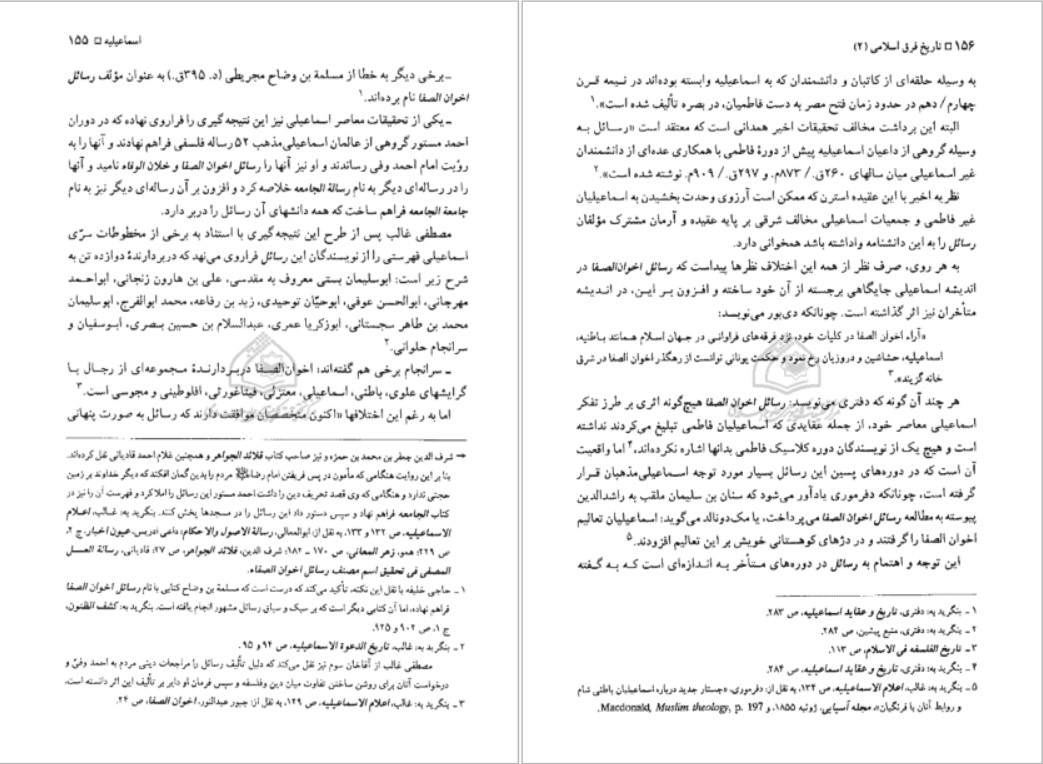 اسماعیلیه □ ۱۵۵
ـ برخی دیگر به خطا از مسلمة بن وضاح مجریطی (د. ۳۹۵ق.) به عنوان مؤلف رسائل
اخوان الصفا نام برده‌اند.۱
ـ یکی از تحقیقات معاصر اسماعیلی نیز این نتیجه‌گیری را فراروی نهاده که در دوران
احمد مستور گروهی از عالمان اسماعیلی‌مذهب ۵۲ رساله فلسفی فراهم نهادند و آنها را به
رؤیت امام احمد وفی رساندند و او نیز آنها را رسائل اخوان الصفا و خلان الوفاء نامید و آنها
را در رساله‌ای دیگر به نام رسالة الجامعه خلاصه کرد و افزون بر آن رساله‌ای دیگر نیز به نام
جامعة الجامعه فراهم ساخت که همه دانشهای آن رسائل را دربر دارد.
مصطفی غالب پس از طرح این نتیجه‌گیری با استناد به برخی از مخطوطات سرّی
اسماعیلی فهرستی را از نویسندگان این رسائل فراروی می‌نهد که دربردارندهٔ دوازده تن به
شرح زیر است: ابوسلیمان بستی معروف به مقدسی، علی بن هارون زنجانی، ابواحمد
مهرجانی، ابوالحسن عوفی، ابوحیّان توحیدی، زید بن رفاعه، محمد ابوالفرج، ابوسلیمان
محمد بن طاهر سجستانی، ابوزکریا عمری، عبدالسلام بن حسین بصری، ابوسفیان و
سرانجام حلوانی.۲
ـ سرانجام برخی هم گفته‌اند: اخوان‌الصفا دربردارندهٔ مجموعه‌ای از رجال با
گرایشهای علوی، باطنی، اسماعیلی، معتزلی، فیثاغورثی، افلوطینی و مجوسی است.۳
اما به رغم این اختلافها «اکنون متخصصان موافقت دارند که رسائل به صورت پنهانی
→ شرف الدین جعفر بن محمد بن حمزه و نیز صاحب کتاب قلائد الجواهر و همچنین غلام احمد قادیانی نقل کرده‌اند.
بنا بر این روایت هنگامی که مأمون در پس فریفتن امام رضا مردم را بدین گمان افکند که دیگر خداوند بر زمین
حجتی ندارد و هنگامی که وی قصد تحریف دین را داشت احمد مستور این رسائل را املا کرد و فهرست آن را نیز در
کتاب الجامعه فراهم نهاد و سپس دستور داد این رسائل را در مسجدها پخش کنند. بنگرید به: غالب، اعلام
الاسماعیلیه، ص ۱۳۲ و ۱۳۳، به نقل از: ابوالمعالی، رسالة الاصول والاحکام؛ داعی ادریس، عیون اخبار، ج ۲،
ص ۲۲۹؛ همو، زهر المعانی، ص ۱۷۰ ـ ۱۸۲؛ شرف الدین، قلائد الجواهر، ص ۲۷؛ قادیانی، رسالة العسل
المصفی فی تحقیق اسم مصنف رسائل اخوان الصفاء.
۱ ـ حاجی خلیفه با نقل این نکته، تأکید می‌کند که درست است که مسلمة بن وضاح کتابی با نام رسائل اخوان الصفا
فراهم نهاده، اما آن کتابی دیگر است که بر سبک و سیاق رسائل مشهور انجام یافته است. بنگرید به: کشف الظنون،
ج ۱، ص ۹۰۲ و ۱۲۵.
۲ ـ بنگرید به: غالب، تاریخ الدعوة الاسماعیلیه، ص ۹۴ و ۹۵.
مصطفی غالب از آقاخان سوم نیز نقل می‌کند که دلیل تألیف رسائل را مراجعات دینی مردم به احمد وفیّ و
درخواست آنان برای روشن ساختن تفاوت میان دین وفلسفه و سپس فرمان او دایر بر تألیف این اثر دانسته است.
۳ ـ بنگرید به: غالب، اعلام الاسماعیلیه، ص ۱۲۹، به نقل از: جبور عبدالنور، اخوان الصفا، ص ۲۴.
۱۵۶ □ تاریخ فرق اسلامی (۲)
به وسیله حلقه‌ای از کاتبان و دانشمندان که به اسماعیلیه وابسته بوده‌اند در نیمه قرن
چهارم/ دهم در حدود زمان فتح مصر به دست فاطمیان، در بصره تألیف شده است».۱
البته این برداشت مخالف تحقیقات اخیر همدانی است که معتقد است «رسائل به
وسیله گروهی از داعیان اسماعیلیه پیش از دورهٔ فاطمی با همکاری عده‌ای از دانشمندان
غیر اسماعیلی میان سالهای ۲۶۰ق./ ۸۷۳م. و ۲۹۷ق./ ۹۰۹م. نوشته شده است».۲
نظریه اخیر با این عقیده استرن که ممکن است آرزوی وحدت بخشیدن به اسماعیلیان
غیر فاطمی و جمعیات اسماعیلی مخالف شرقی بر پایه عقیده و آرمان مشترک مؤلفان
رسائل را به این دانشنامه واداشته باشد همخوانی دارد.
به هر روی، صرف نظر از همه این اختلاف نظرها پیداست که رسائل اخوان‌الصفا در
اندیشه اسماعیلی جایگاهی برجسته از آن خود ساخته و افزون بر این، در اندیشه
متأخران نیز اثر گذاشته است. چونانکه دی‌بور می‌نویسد:
«آراء اخوان الصفا در کلیات خود، نزد فرقه‌های فراوانی در جهان اسلام همانند باطنیه،
اسماعیلیه، حشاشین و دروزیان رخ نمود و حکمت یونانی توانست از رهگذر اخوان الصفا در شرق
خانه گزیند».۳
هر چند آن گونه که دفتری می‌نویسد: رسائل اخوان الصفا هیچ‌گونه اثری بر طرز تفکر
اسماعیلی معاصر خود، از جمله عقایدی که اسماعیلیان فاطمی تبلیغ می‌کردند نداشته
است و هیچ یک از نویسندگان دوره کلاسیک فاطمی بدانها اشاره نکرده‌اند،۴ اما واقعیت
آن است که در دوره‌های پسین این رسائل بسیار مورد توجه اسماعیلی‌مذهبان قرار
گرفته است، چونانکه دفرموری یادآور می‌شود که سنان بن سلیمان ملقب به راشدالدین
پیوسته به مطالعه رسائل اخوان الصفا می‌پرداخت، یا مک‌دونالد می‌گوید: اسماعیلیان تعالیم
اخوان الصفا را گرفتند و در دژهای کوهستانی خویش بر این تعالیم افزودند.۵
این توجه و اهتمام به رسائل در دوره‌های متأخر به اندازه‌ای است که به گفته
۱ ـ بنگرید به: دفتری، تاریخ و عقاید اسماعیلیه، ص ۲۸۳.
۲ ـ بنگرید به: دفتری، منبع پیشین، ص ۲۸۴.
۳ ـ تاریخ الفلسفه فی الاسلام، ص ۱۱۳.
۴ ـ بنگرید به: دفتری، تاریخ و عقاید اسماعیلیه، ص ۲۸۴.
۵ ـ بنگرید به: غالب، اعلام الاسماعیلیه، ص ۱۳۴، به نقل از: دفرموری، «جستار جدید درباره اسماعیلیان باطنی شام
و روابط آنان با فرنگیان»، مجله آسیایی، ژوئیه ۱۸۵۵، و Macdonald, Muslim theology, p. 197.